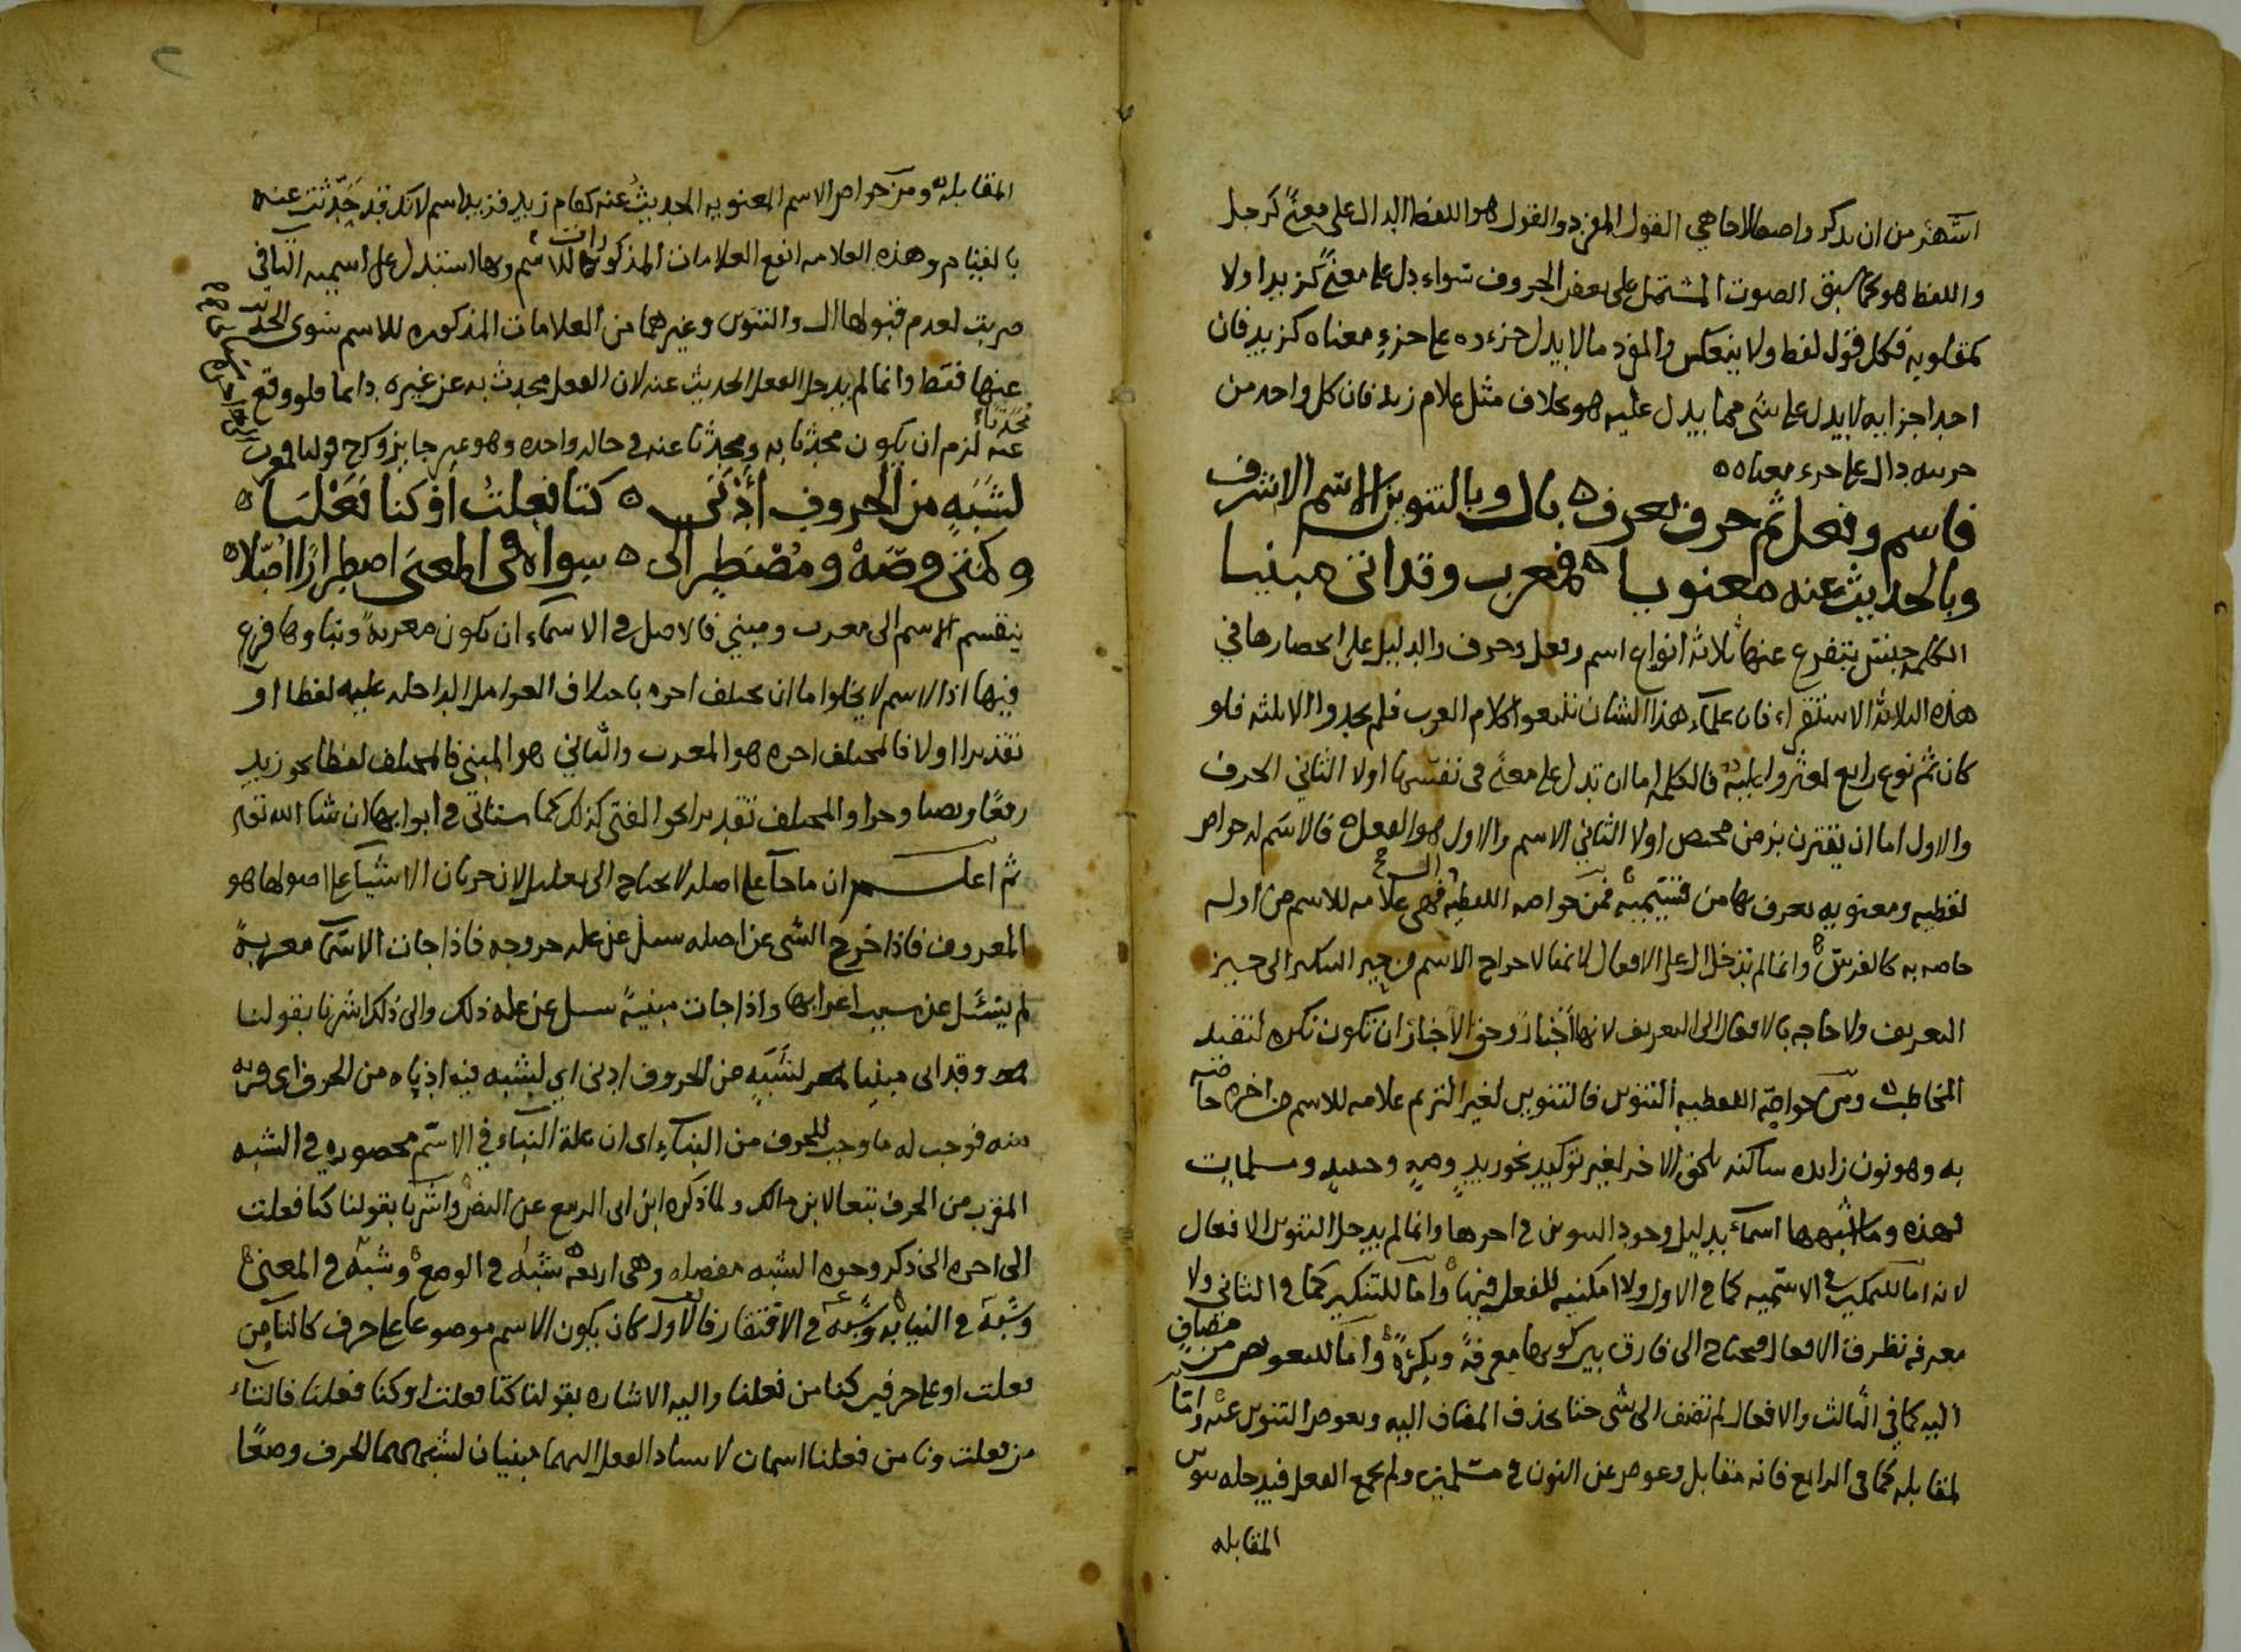 اشهر من ان يذكر واصطلاحا هي القول المفرد والقول هو اللفظ الدال على معنى كرجل
واللفظ هو كما سبق الصوت المشتمل على بعض الحروف سواء دل على معنى كزيد او لا
كمقلوبه فكل قول لفظ ولا ينعكس والمفرد ما لا يدل جزءه على جزء معناه كزيد فان
احد اجزايه لا يدل على شي مما يدل عليه هو بخلاف مثل غلام زيد فان كل واحد من
جزييه دال على جزء معناه
فاسم وفعل ثم حرف تعرف بال وبالتنوين الاسم الاشرف
وبالحديث عنه معنويا فمعرب وقد اتى مبنيا
الكلمه جنس يتفرع عنها ثلاثه انواع اسم وفعل وحرف والدليل على انحصارها في
هذه الثلاثه الاستقراء فان علماء هذا الشان تتبعوا كلام العرب فلم يجدوا الا ثلثه فلو
كان ثم نوع رابع لعثروا عليه فالكلمه اما ان تدل على معنى في نفسها اولا الثاني الحرف
والاول اما ان يقترن بزمن محصل اولا الثاني الاسم والاول هو الفعل فالاسم له خواص
لفظيه ومعنويه يعرف بها من قسيميه فمن خواصه اللفظيه ال فهي علامه للاسم من اوله
خاصه به كالفرس وانما لم تدخل ال على الافعال لانها لاخراج الاسم من حيز التنكير الى حيز
التعريف ولا حاجه بالافعال الى التعريف لانها اخبار وحق الاخبار ان تكون نكره لتفيد
المخاطب ومن خواصه اللفظيه التنوين فالتنوين لغير الترنم علامه للاسم من اخره خاصه
به وهو نون زايده ساكنه تلحق الاخر لغير توكيد نحو زيد وصه وحينئذ ومسلمات
فهذه وما اشبهها اسماء بدليل وجود التنوين في اخرها وانما لم يدخل التنوين الافعال
لانه اما للتمكين في الاسميه كما في الاول ولا امكنيه للفعل فيها واما للتنكير كما في الثاني ولا
معرفه تطرق الافعال فتحتاج الى فارق بين كونها معرفة ونكرة واما للتعويض من مضاف
اليه كما في الثالث والافعال لم تضف الى شي حتا يحذف المضاف اليه ويعوض التنوين عنه واما
لمقابله كما في الرابع فانه مقابل وعوض عن النون في مسلمين ولم يجمع الفعل فيدخله تنوين
المقابله
المقابله ومن خواص الاسم المعنويه الحديث عنه كقام زيد فزيد اسم لانك قد حدثت عنه
بالقيام وهذه العلامه انفع العلامات المذكورات للاسم وبها استدل على اسميه التا في
ضربت لعدم قبولها ال والتنوين وغيرهما من العلامات المذكوره للاسم سوى الحديث
عنها فقط وانما لم يدخل الفعل الحديث عنه لان الفعل محدث به عن غيره دايما فلو وقع محدثا
عنه لزم ان يكون محدثا به ومحدثا عنه في حاله واحده وهو غير جايز
لشبه من الحروف ادنى كتا فعلت او كنا فعلنا
وكمتى وصه ومضطر الى سواه في المعنى اضطرارا اصلا
ينقسم الاسم الى معرب ومبني فالاصل في الاسماء ان تكون معربة وبناوها فرع
فيها اذ الاسم لا يخلوا اما ان يختلف اخره باختلاف العوامل الداخله عليه لفظا او
تقديرا اولا فالمختلف اخره هو المعرب والثاني هو المبني فالمختلف لفظا نحو زيد
رفعا ونصبا وجرا والمختلف تقديرا نحو الفتى كذلك كما ستاتي في ابوابها ان شا الله تع
ثم اعلم ان ما جا على اصله لا يحتاج الى تعليل لان جريان الاشيا على اصولها هو
المعروف فاذا خرج الشي عن اصله سيل عن عله خروجه فاذا جات الاسما معربة
لم يسئل عن سبب اعرابها واذا جات مبنية سيل عن عله ذلك والى ذلك اشرنا بقولنا
وقد اتى مبنيا لشبه من الحروف ادنى اي لشبه فيه ادناه من الحرف اي قربه
منه فوجب له ما وجب للحرف من البناء اي ان علة البناء في الاسم محصوره في الشبه
المقرب من الحرف تبعا لابن مالك ولما ذكره ابن ابي الربيع عن النص واشرنا بقولنا كتا فعلت
الى اخره الى ذكر وجوه الشبه مفصله وهي اربعه شبه في الوضع وشبه في المعنى
وشبه في النيابه وشبه في الافتقار فالاول كان يكون الاسم موضوعا على حرف كالتا من
فعلت او على حرفين كنا من فعلنا واليه الاشاره بقولنا كتا فعلت او كنا فعلنا فالتاء
من فعلت ونا من فعلنا اسمان لاسناد الفعل اليهما مبنيان لشبههما الحرف وضعا